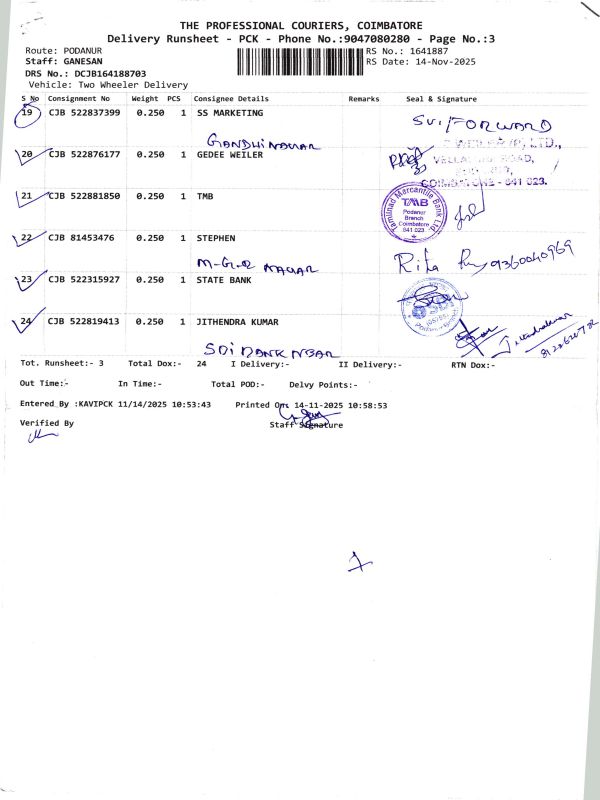 THE PROFESSIONAL COURIERS, COIMBATORE
Delivery Runsheet - PCK - Phone No.:9047080280 - Page No.:3
Route: PODANUR RS No.: 1641887
Staff: GANESAN RS Date: 14-Nov-2025
DRS No.: DCJB164188703
Vehicle: Two Wheeler Delivery
S No Consignment No Weight PCS Consignee Details Remarks Seal & Signature
19 CJB 522837399 0.250 1 SS MARKETING
GANDHINAGAR
20 CJB 522876177 0.250 1 GEDEE WEILER
ROAD,
COIMBATORE - 641 023.
21 CJB 522881850 0.250 1 TMB
Tamilnad Mercantile Bank Ltd.
TMB
Podanur
Branch
Coimbatore
641 023
22 CJB 81453476 0.250 1 STEPHEN
M-G-R NAGAR
Rita 9360040969
23 CJB 522315927 0.250 1 STATE BANK
24 CJB 522819413 0.250 1 JITHENDRA KUMAR
Tot. Runsheet:- 3 Total Dox:- 24 I Delivery:- II Delivery:- RTN Dox:-
Out Time:- In Time:- Total POD:- Delvy Points:-
Entered By :KAVIPCK 11/14/2025 10:53:43 Printed On: 14-11-2025 10:58:53
Verified By Staff Signature